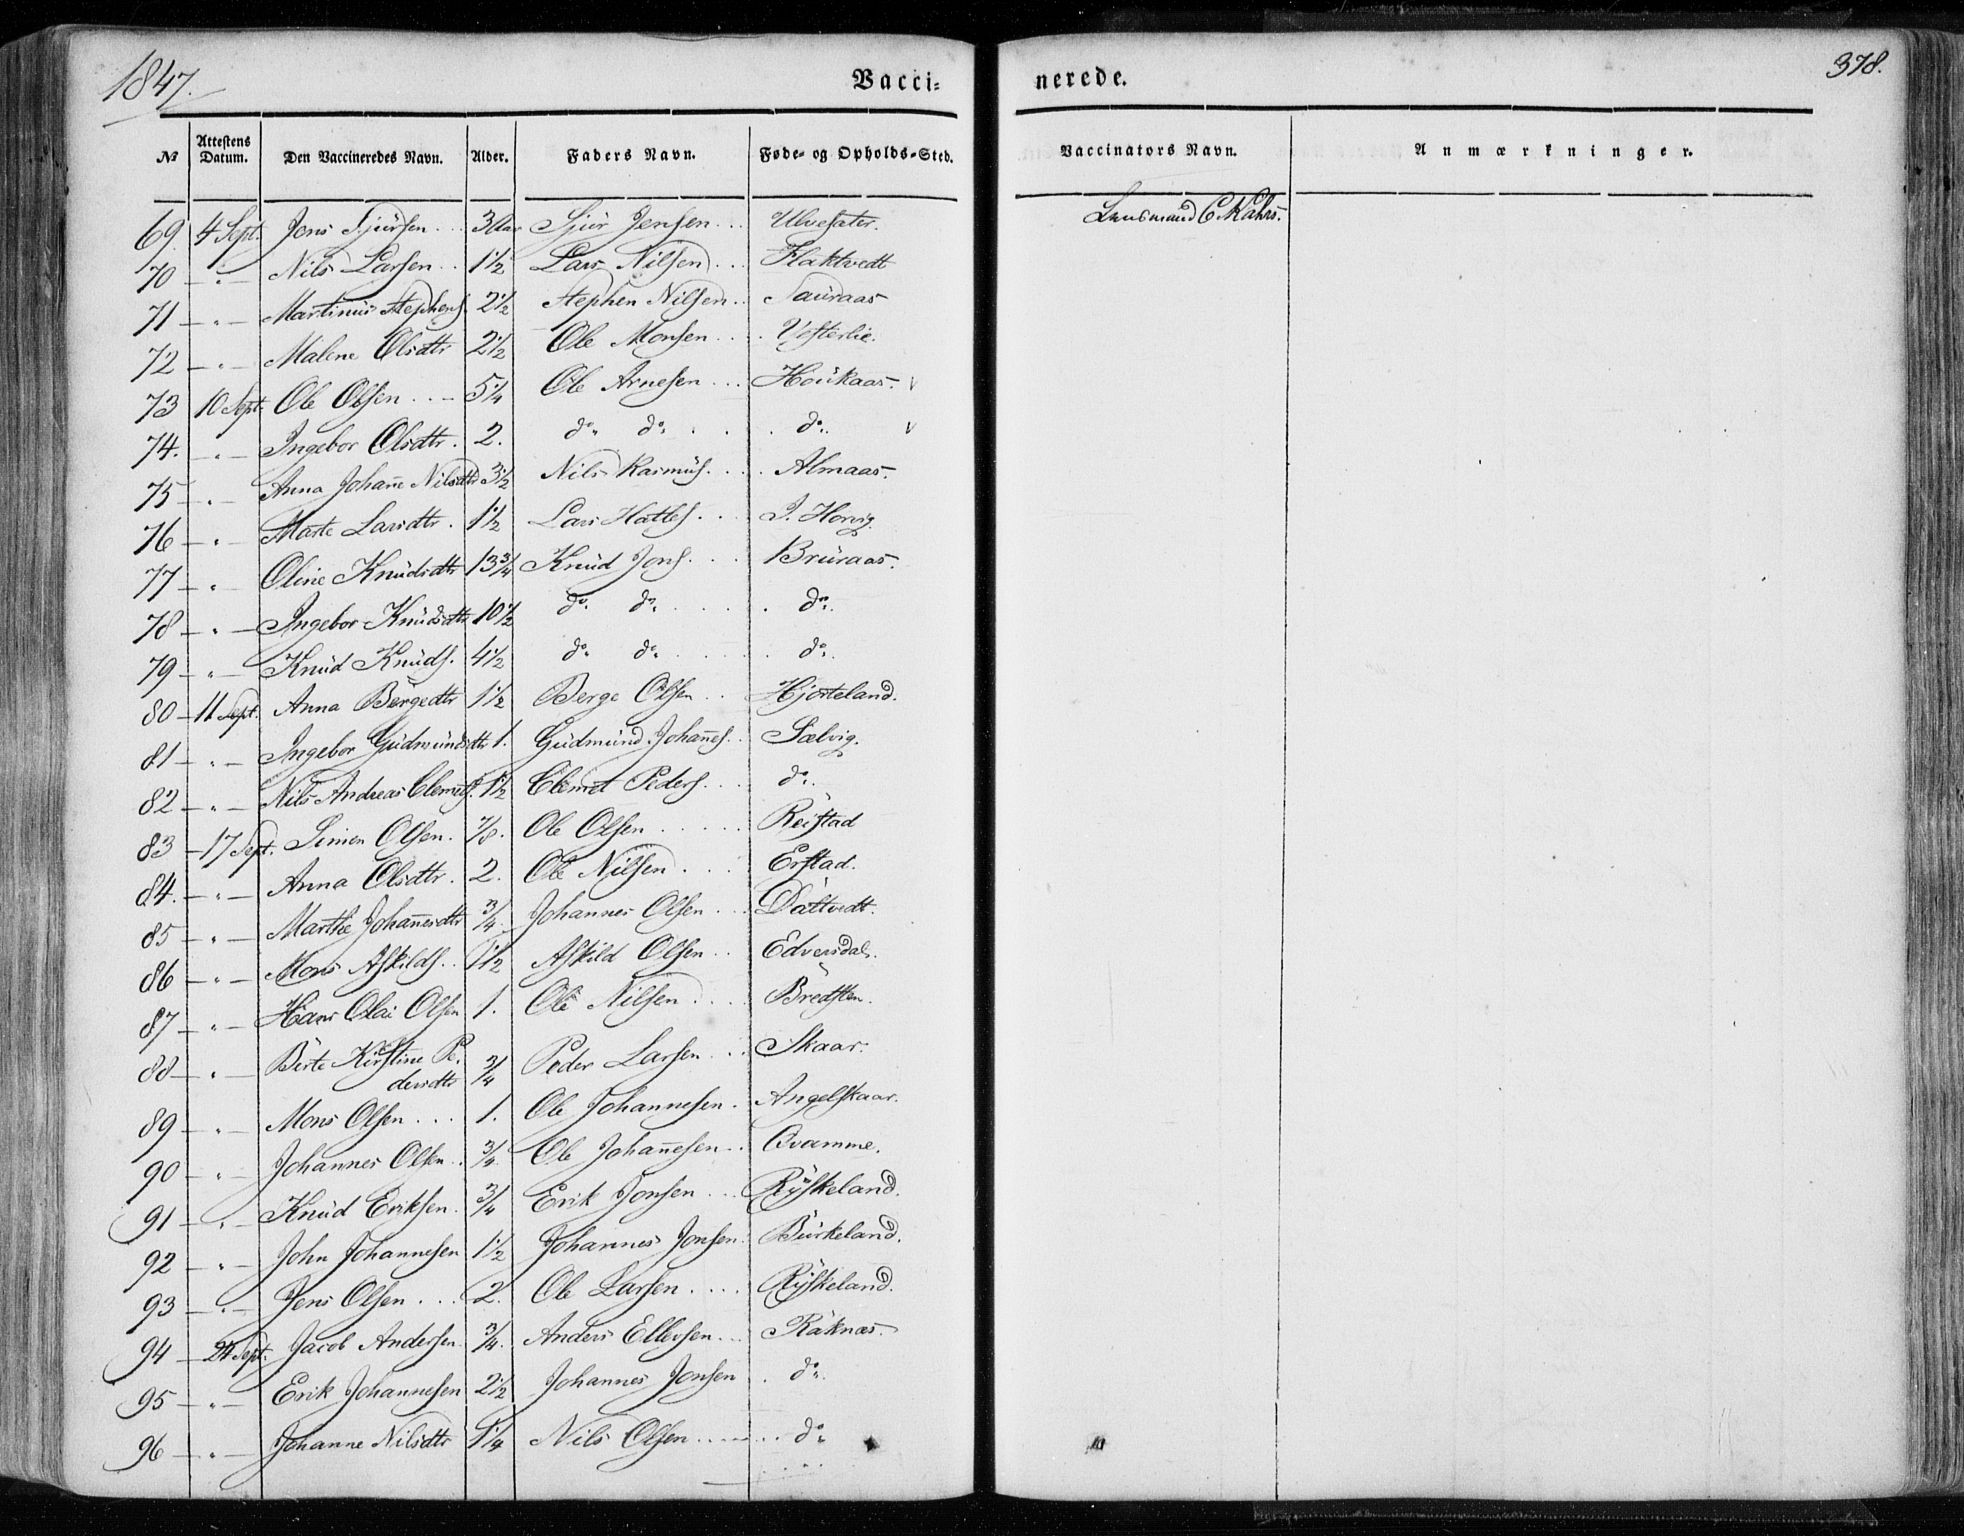 1847.
Vacci-
nerede.
378.
№ Attestens Datum. Den Vaccineredes Navn. Alder. Faders Navn. Føde- og Opholds-Sted. Vaccinators Navn. Anmærkninger.
69 4 Sept. Jens Sjursen 3 Aar Sjur Jensen Ulvesater. Lensmand C. Kahrs.
70 — " — Nils Larsen 1½ Lars Nilsen Flaktvedt
71 — " — Martinus Stephens. 2½ Stephen Nilsen Sauraas
72 — " — Malene Olsdtr 2½ Ole Monsen Vesterlie.
73 10 Sept. Ole Olsen 5¼ Ole Arnesen Houkaas. v
74. — " — Ingebor Olsdtr. 2. do. do. do. v
75 — " — Anna Johañe Nilsdtr 3½ Nils Rasmus. Almaas.
76 — " — Marte Larsdtr. 1½ Lars Hatles. I. Horvig.
77 — " — Oline Knudsdtr 13¾ Knud Jons. Bruraas.
78 — " — Ingebor Knudsdtr 10½ do. do. do.
79 — " — Knud Knuds. 4½ do. do. do.
80 — 11 Sept. Anna Bergedtr 1½ Berge Olsen Hjorteland.
81 — " — Ingebor Gudmundsdtr 1. Gudmund Johañes. Sælvig.
82 — " — Nils Andreas Clemets. 1½ Clemet Peders. do.
83 — 17 Sept. Simen Olsen. 7/8. Ole Olsen Reistad
84. — " — Anna Olsdtr. 2. Ole Nilsen Erstad.
85 — " — Marthe Johañesdtr ¾ Johannes Olsen Daltvedt.
86 — " — Mons Askilds. 1½ Askild Olsen Edversdal.
87 — " — Hans Olai Olsen 1. Ole Nilsen Bredsten.
88 — " — Birte Kirstine Pe-
dersdtr ¾ Peder Larsen Skaar.
89 — " — Mons Olsen 1. Ole Johannesen. Angelskaar.
90 — " — Johannes Olsen. ¾ Ole Johañesen Qvamme.
91 — " — Knud Eriksen. ¾ Erik Jonsen Ryskeland.
92 — " — John Johannesen 1½ Johannes Jonsen Burkeland.
93 — " — Jens Olsen 2. Ole Larsen Ryskeland.
94 — 24 Sept. Jacob Andersen ¾. Anders Ellevsen Raknæs.
95 — " — Erik Johannesen 2½ Johannes Jonsen do.
96 — " — Johanne Nilsdtr 1¼ Nils Olsen do.